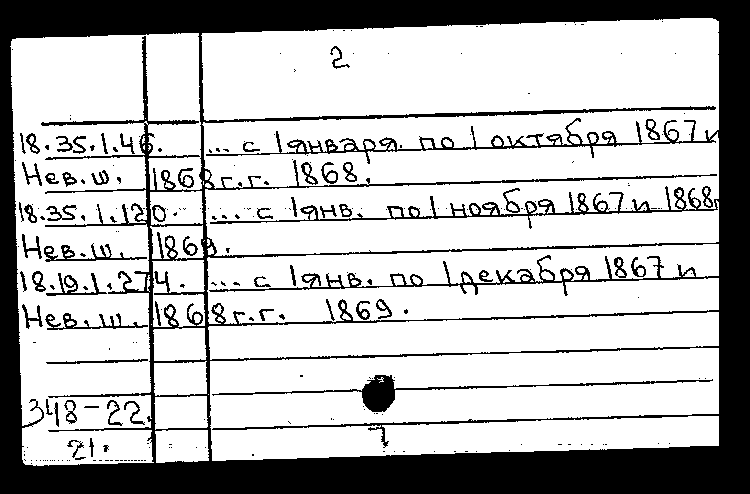 2
18.35.1.46. ... с 1 января по 1 октября 1867 и
Нев.ш. 1868 г.г. 1868.
18.35.1.120. ... с 1 янв. по 1 ноября 1867 и 1868г
Нев.ш. 1869.
18.19.1.274. ... с 1 янв. по 1 декабря 1867 и
Нев.ш. 1868 г.г. 1869.
348-22.
21.